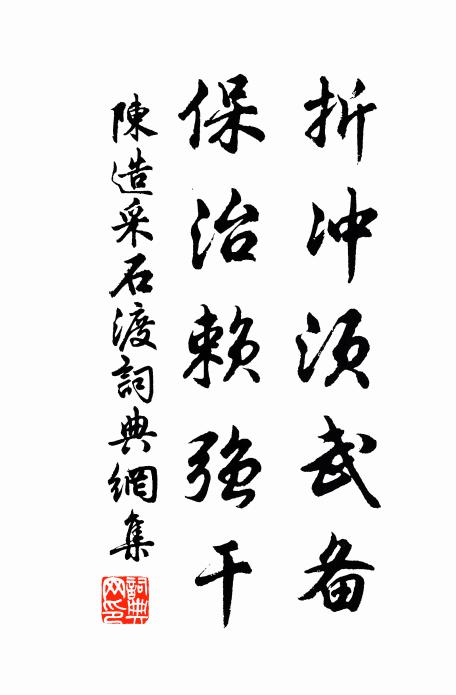 折冲须武备
保治赖强干
陳造采石渡詞典網集
詞典網印